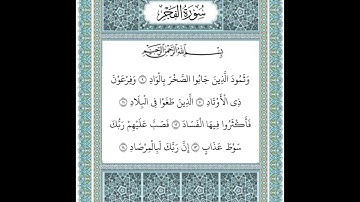 سُورَةُ الْفَجْرِ
بِسْمِ اللَّهِ الرَّحْمَٰنِ الرَّحِيمِ
وَثَمُودَ الَّذِينَ جَابُوا الصَّخْرَ بِالْوَادِ ۝٩ وَفِرْعَوْنَ
ذِي الْأَوْتَادِ ۝١٠ الَّذِينَ طَغَوْا فِي الْبِلَادِ ۝١١
فَأَكْثَرُوا فِيهَا الْفَسَادَ ۝١٢ فَصَبَّ عَلَيْهِمْ رَبُّكَ
سَوْطَ عَذَابٍ ۝١٣ إِنَّ رَبَّكَ لَبِالْمِرْصَادِ ۝١٤